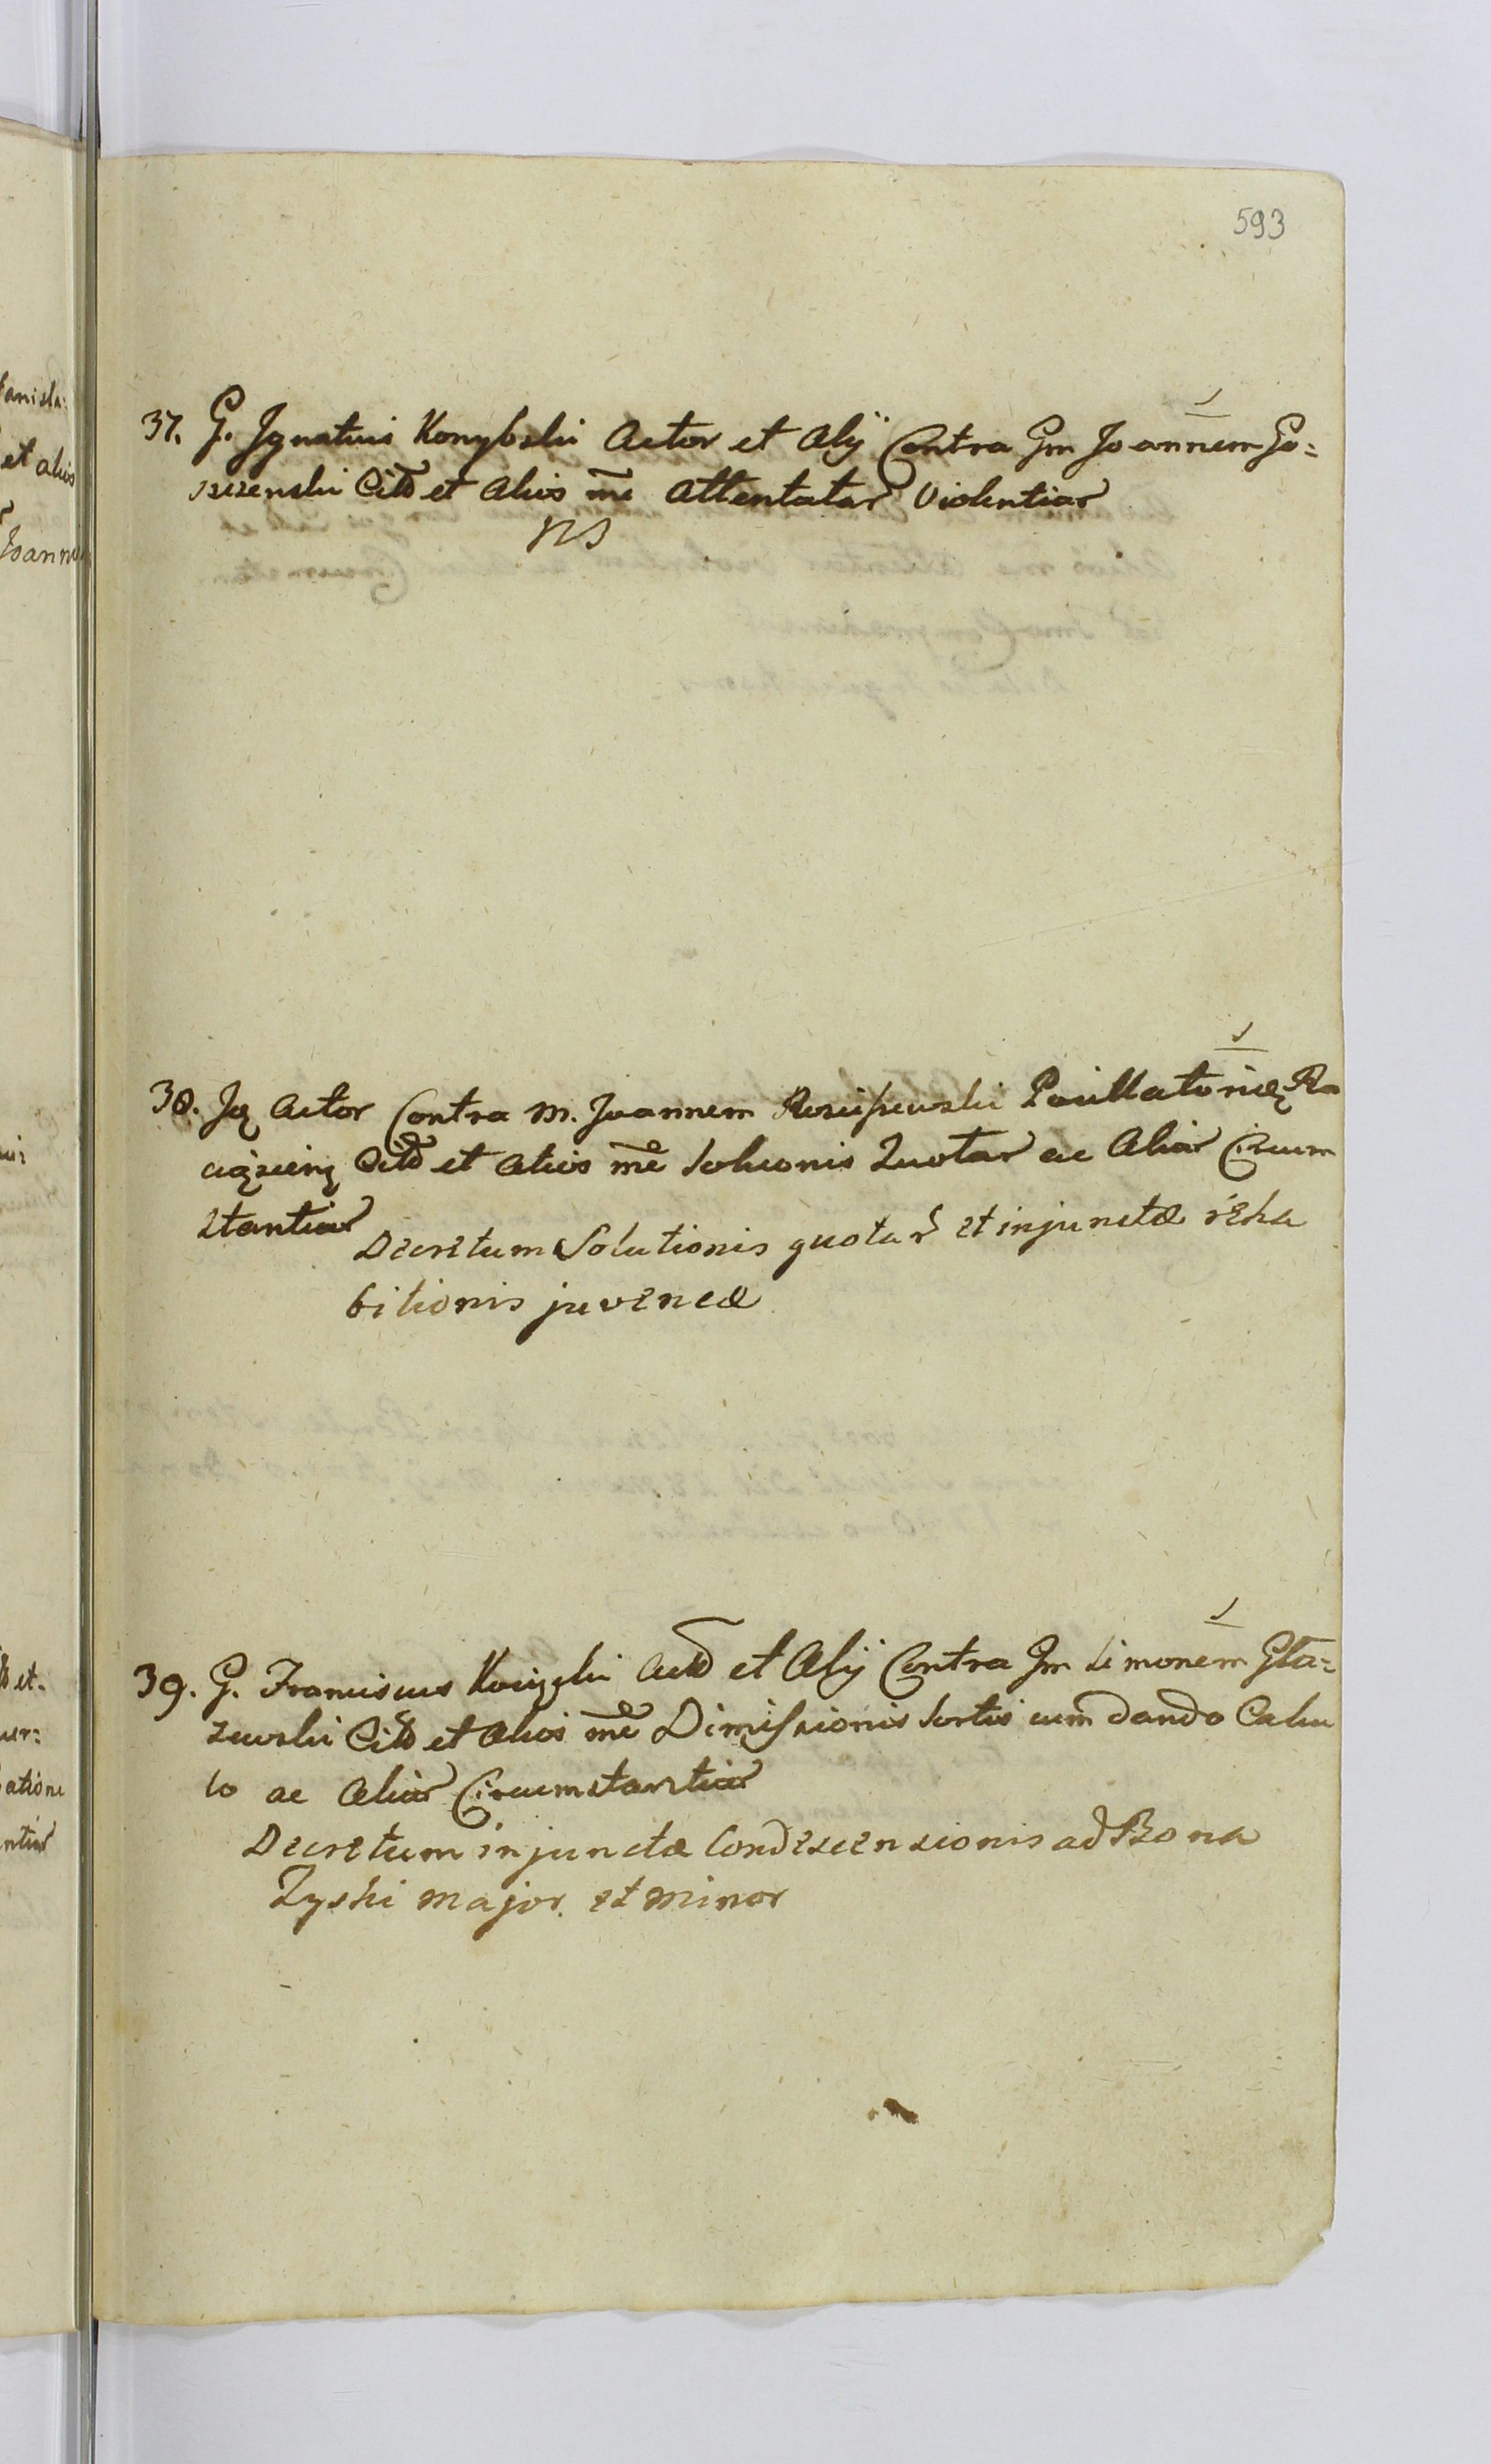 593
37. G. Ignatius Konybski Actor et Alij Contra Gm Joannem Go=
szczenski Citd et Alios me Attentatar Violentiar
NS
38. Jq Actor Contra M. Joannem Rosciszewski
Citd et Alios me Soluonis Quotar ac Aliar Circum
stantiar
Decretum Solutionis quotar et injunctæ reha
bitionis juvencæ
39. G. Franciscus Actd et Alij Contra Gm Simonem Gła=
zewski Citd et Alios me Dimissionis Sortis cum dando Calcu
lo ac Aliar Circumstantiar
Decretum injunctæ Condescensionis ad Bona
Zyski major. et minor